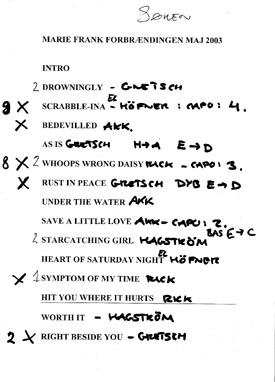 SØREN
MARIE FRANK FORBRÆNDINGEN MAJ 2003
INTRO
2 DROWNINGLY - GRETSCH
9 X SCRABBLE-INA - EL HÖFNER : CAPO : 4.
X BEDEVILLED AKK.
AS IS GRETSCH H→A E→D
8 X 2 WHOOPS WRONG DAISY RICK - CAPO : 3.
X RUST IN PEACE GRETSCH DYB E→D
UNDER THE WATER AKK
SAVE A LITTLE LOVE AKK - CAPO : 2.
2 STARCATCHING GIRL HAGSTRÖM BAS E→C
HEART OF SATURDAY NIGHT EL HÖFNER
X 1 SYMPTOM OF MY TIME RICK
HIT YOU WHERE IT HURTS RICK
WORTH IT - HAGSTRÖM
2 X RIGHT BESIDE YOU - GRETSCH